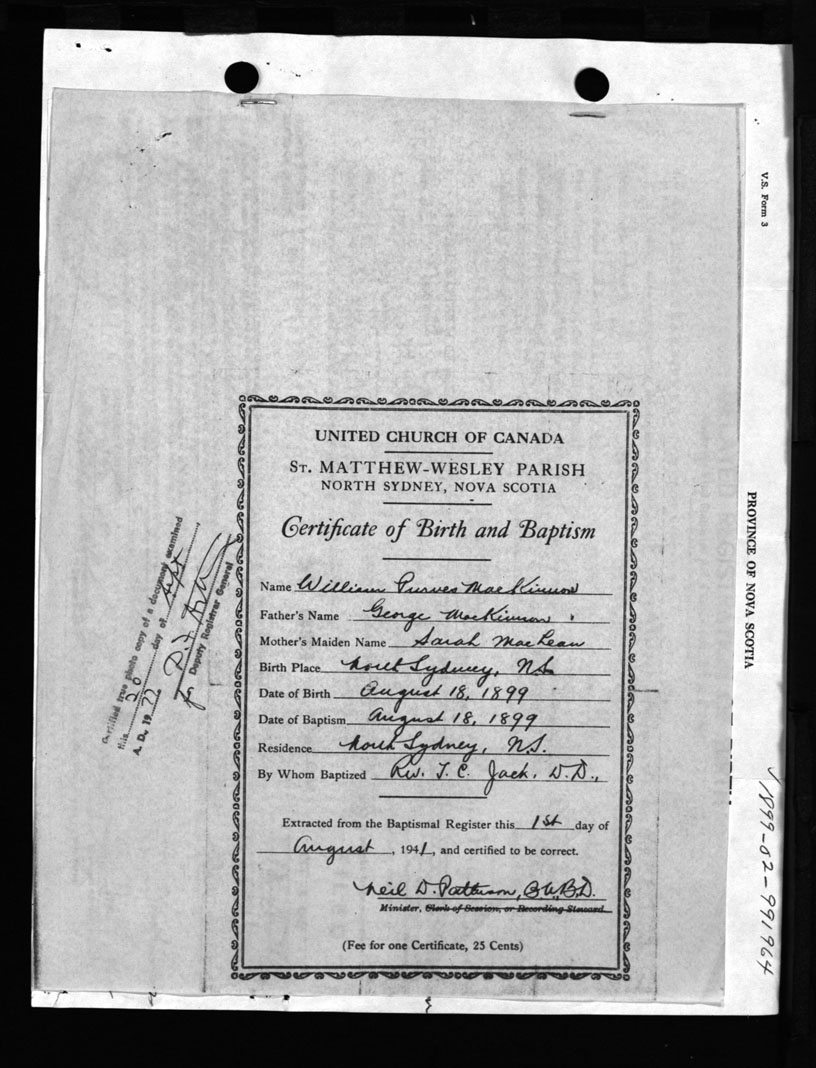 V.S. Form 3
PROVINCE OF NOVA SCOTIA
UNITED CHURCH OF CANADA
ST. MATTHEW-WESLEY PARISH
NORTH SYDNEY, NOVA SCOTIA
Certificate of Birth and Baptism
Name William Purves MacKinnon
Father's Name George MacKinnon
Mother's Maiden Name Sarah MacLean
Birth Place North Sydney, N.S.
Date of Birth August 18, 1899
Date of Baptism August 18, 1899
Residence North Sydney, N.S.
By Whom Baptized Rev. T. C. Jack, D.D.,
Extracted from the Baptismal Register this 1st day of
August, 1941, and certified to be correct.
Neil D. Patterson, B.A., B.D.
Minister, Clerk of Session, or Recording Steward
(Fee for one Certificate, 25 Cents)
Certified true photo copy of a document examined
this 20 day of Sept
A. D. 1977
for Deputy Registrar General
1899-02-991964